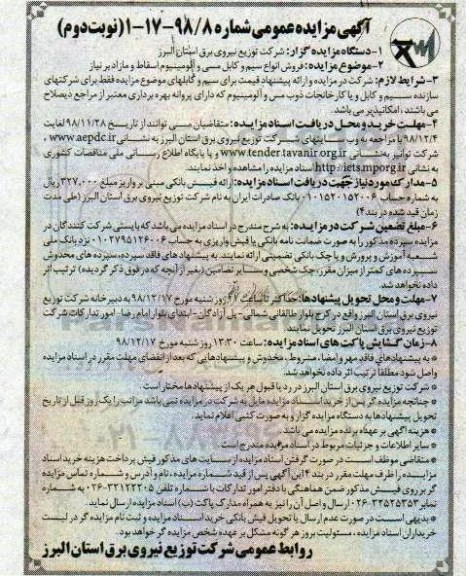 آگهی مزایده عمومی شماره ۹۸/۸-۱۷-۱(نوبت دوم)
۱-دستگاه مزایده گزار: شرکت توزیع نیروی برق استان البرز
۲-موضوع مزایده: فروش انواع سیم و کابل مسی و آلومینیوم اسقاط و مازاد بر نیاز
۳-شرایط لازم: شرکت در مزایده و ارائه پیشنهاد قیمت برای سیم و کابلهای موضوع مزایده فقط برای شرکتهای
سازنده سیم و کابل و یا کارخانجات ذوب مس و آلومینیوم که دارای پروانه بهره برداری معتبر از مراجع ذیصلاح
می باشند، امکانپذیر می باشد.
۴-مهلت خرید و محل دریافت اسناد مزایده: متقاضیان می توانند از تاریخ ۹۸/۱۱/۲۸ لغایت
۹۸/۱۲/۴ با مراجعه به وب سایتهای شرکت توزیع نیروی برق استان البرز به نشانی www.aepdc.ir ،
شرکت توانیر به نشانی www.tender.tavanir.org.ir و یا پایگاه اطلاع رسانی ملی مناقصات کشوری
به نشانی http://iets.mporg.ir اسناد مزایده را مشاهده و اخذ نمایند.
۵-مدارک مورد نیاز جهت دریافت اسناد مزایده: ارائه فیش بانکی مبنی بر واریز مبلغ ۳۲۷,۰۰۰ ریال
به شماره حساب ۰۱۰۱۵۲۰۱۵۲۰۰۶ بانک صادرات ایران به نام شرکت توزیع نیروی برق استان البرز (طی مدت
زمان قید شده در بند ۴)
۶-مبلغ تضمین شرکت در مزایده: به شرح مندرج در اسناد مزایده می باشد که بایستی شرکت کنندگان در
مزایده سپرده مذکور را به صورت ضمانت نامه بانکی یا فیش واریزی به حساب ۰۱۰۲۷۹۵۱۲۶۰۰۶ نزد بانک ملی
شعبه آموزش و پرورش و یا چک بانکی تضمینی ارائه نمایند. به پیشنهاد های فاقد سپرده، سپرده های مخدوش
سپرده های کمتر از میزان مقرر، چک شخصی و سایر تضامین (بغیر از آنچه که در فوق ذکر گردیده) ترتیب اثر
داده نخواهد شد.
۷-مهلت و محل تحویل پیشنهادها: حداکثر تا ساعت روز شنبه مورخ ۹۸/۱۲/۱۷ به دبیرخانه شرکت توزیع
نیروی برق استان البرز واقع در کرج بلوار طالقانی شمالی- پل آزادگان- ابتدای بلوار امام رضا- امور تدارکات شرکت
توزیع نیروی برق استان البرز تحویل نمایند.
۸-زمان گشایش پاکت های اسناد مزایده: ساعت ۱۳:۳۰ روز شنبه مورخ ۹۸/۱۲/۱۷
* به پیشنهادهای فاقد مهر و امضا، مشروط، مخدوش و پیشنهادهایی که بعد از انقضای مهلت مقرر در اسناد مزایده
واصل شود مطلقا ترتیب اثر داده نخواهد شد.
* شرکت توزیع نیروی برق استان البرز در رد یا قبول هر یک از پیشنهادها مختار است.
* چنانچه مزایده گر پس از خرید اسناد مزایده مایل به شرکت در مزایده نمی باشد مراتب را یک روز قبل از تاریخ
تحویل پیشنهادها به دستگاه مزایده گزار و به صورت کتبی اعلام نماید.
* هزینه آگهی بر عهده برنده مزایده می باشد
* سایر اطلاعات و جزئیات مربوط در اسناد مزایده مندرج است
* متقاضی موظف است در صورت گرفتن اسناد مزایده از سایت های مذکور فیش پرداخت هزینه خرید اسناد
مزایده را ظرف مهلت مقرر در بند ۴ این آگهی پس از قید شماره مزایده، نام و آدرس و شماره تماس مزایده
گر بر روی فیش مذکور ضمن هماهنگی با دفتر امور تدارکات با شماره تلفن ۰۲۶-۳۲۱۲۳۲۰۵ به شماره
نمابر ۰۲۶-۳۲۵۲۵۳۵۳ ارسال و اصل آن را نیز به همراه مدارک پاکت (ب) اسناد مزایده ارسال نماید.
* بدیهی است در صورت عدم ارسال یا تحویل فیش بانکی خرید اسناد مزایده و ثبت نام مزایده گر در لیست
خریداران اسناد مزایده، مسئولیت بروز هر گونه مشکل بر عهده شخص مزایده گر خواهد بود.
روابط عمومی شرکت توزیع نیروی برق استان البرز